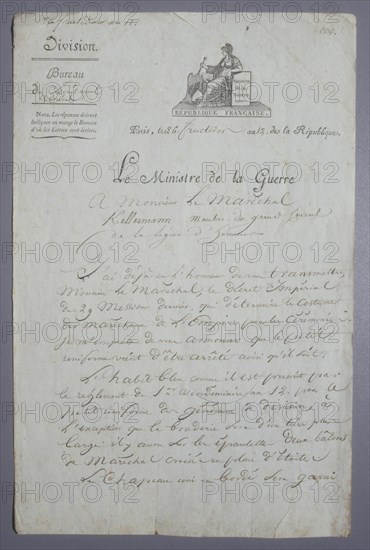 Division.
Bureau
du
Nota. Les réponses doivent
indiquer en marge le Bureau
d'où les Lettres sont écrites.
RÉPUBLIQUE FRANÇAISE.
Paris, le 26 fructidor an 12 de la République
Le Ministre de la Guerre
A Monsieur Le Maréchal
Kellermann membre du grand Conseil
de la légion d'honneur
J'ai déjà eu l'honneur de vous transmettre,
Monsieur Le Maréchal, le décret Impérial
du 29 Messidor dernier, qui détermine le Costume
des maréchaux de L'Empire pour les Cérémonies
je m'empresse de vous annoncer que le petit
uniforme vient d'être arrêté ainsi qu'il suit:
L'habit bleu comme il est prescrit par
le réglement du 1er Vendémiaire an 12, pour le
petit uniforme des généraux de division, à
l'exception que la broderie sera d'un tiers plus
large; il y aura sur les épaulettes deux bâtons
de Maréchal croisés au milieu d'Étoiles
Le Chapeau uni et bordé sera garni